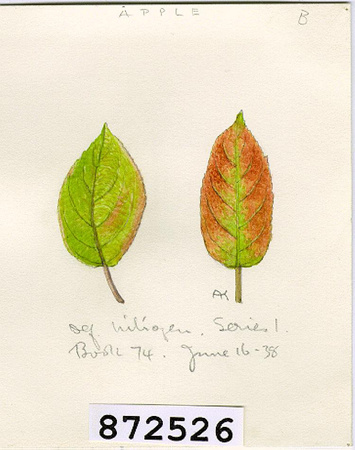 APPLE
B
AK
def nitrogen. Series 1.
Book 74. June 16-38
872526